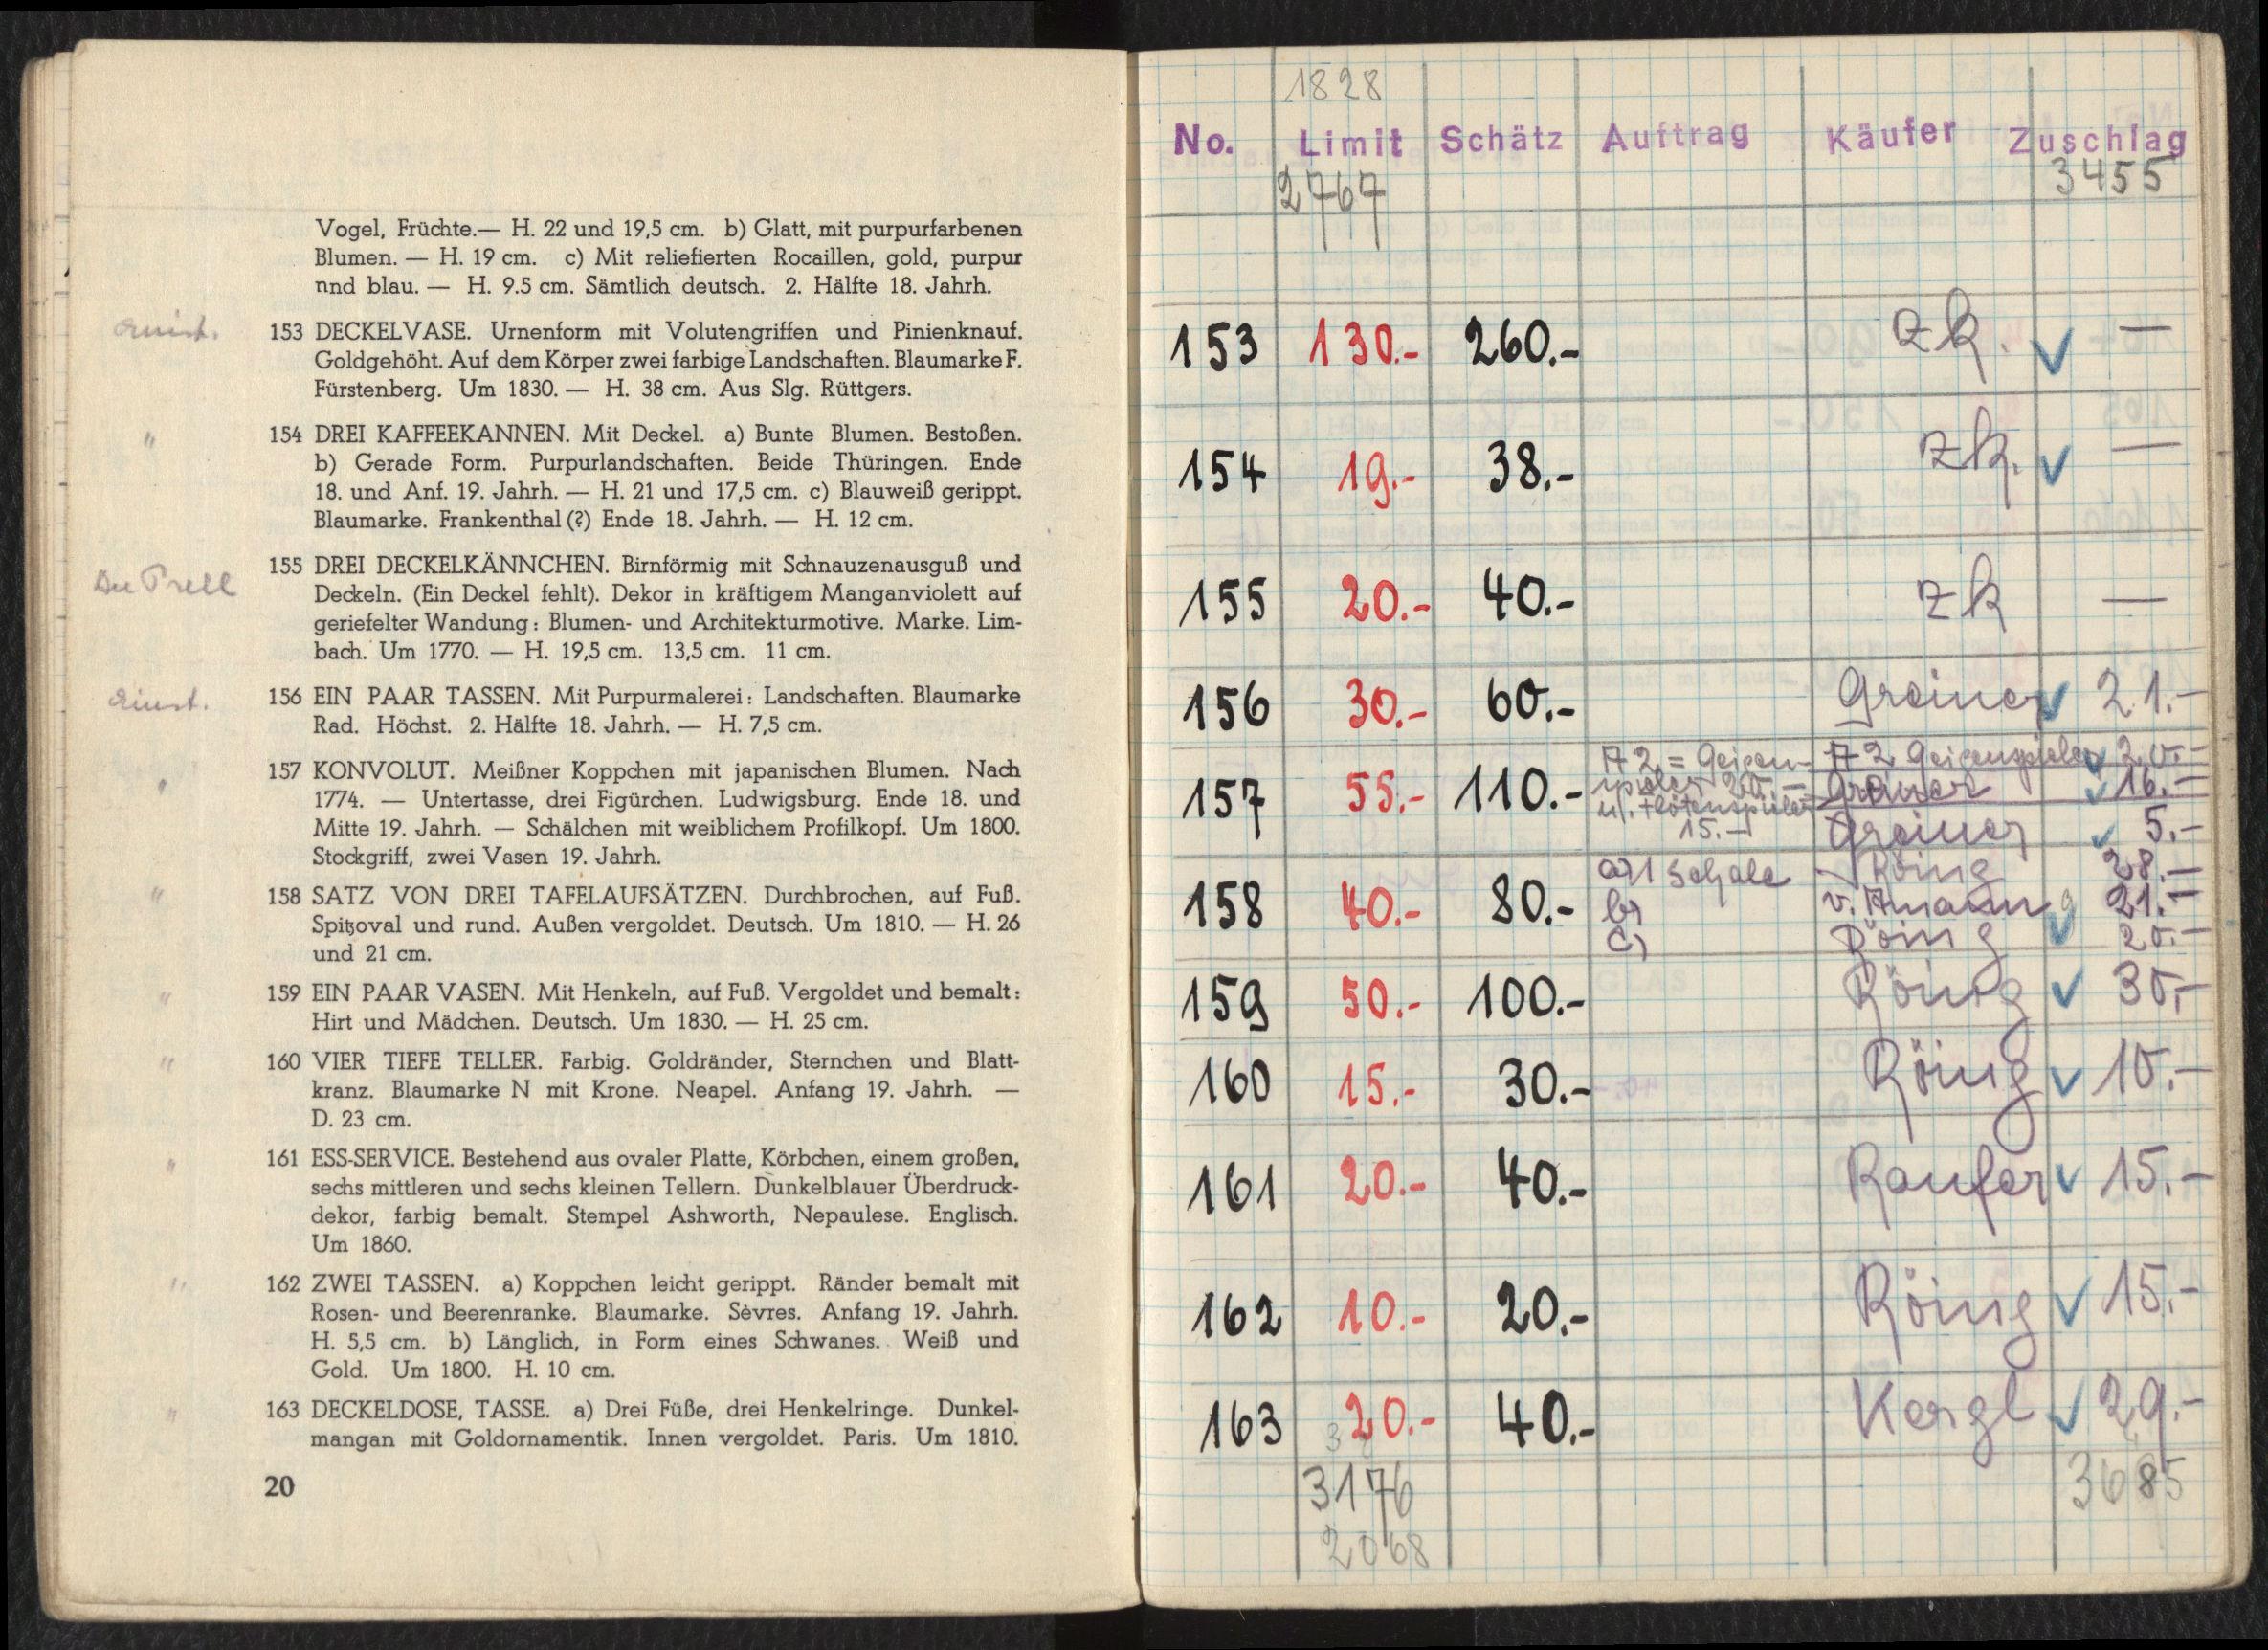 Vogel, Früchte.— H. 22 und 19,5 cm. b) Glatt, mit purpurfarbenen
Blumen. — H. 19 cm. c) Mit reliefierten Rocaillen, gold, purpur
nnd blau. — H. 9.5 cm. Sämtlich deutsch. 2. Hälfte 18. Jahrh.
153 DECKELVASE. Urnenform mit Volutengriffen und Pinienknauf.
Goldgehöht. Auf dem Körper zwei farbige Landschaften. Blaumarke F.
Fürstenberg. Um 1830. — H. 38 cm. Aus Slg. Rüttgers.
"
154 DREI KAFFEEKANNEN. Mit Deckel. a) Bunte Blumen. Bestoßen.
b) Gerade Form. Purpurlandschaften. Beide Thüringen. Ende
18. und Anf. 19. Jahrh. — H. 21 und 17,5 cm. c) Blauweiß gerippt.
Blaumarke. Frankenthal (?) Ende 18. Jahrh. — H. 12 cm.
Du Prell
155 DREI DECKELKÄNNCHEN. Birnförmig mit Schnauzenausguß und
Deckeln. (Ein Deckel fehlt). Dekor in kräftigem Manganviolett auf
geriefelter Wandung: Blumen- und Architekturmotive. Marke. Lim-
bach. Um 1770. — H. 19,5 cm. 13,5 cm. 11 cm.
156 EIN PAAR TASSEN. Mit Purpurmalerei: Landschaften. Blaumarke
Rad. Höchst. 2. Hälfte 18. Jahrh. — H. 7,5 cm.
157 KONVOLUT. Meißner Koppchen mit japanischen Blumen. Nach
1774. — Untertasse, drei Figürchen. Ludwigsburg. Ende 18. und
Mitte 19. Jahrh. — Schälchen mit weiblichem Profilkopf. Um 1800.
Stockgriff, zwei Vasen 19. Jahrh.
"
158 SATZ VON DREI TAFELAUFSÄTZEN. Durchbrochen, auf Fuß.
Spitzoval und rund. Außen vergoldet. Deutsch. Um 1810. — H. 26
und 21 cm.
"
159 EIN PAAR VASEN. Mit Henkeln, auf Fuß. Vergoldet und bemalt:
Hirt und Mädchen. Deutsch. Um 1830. — H. 25 cm.
"
160 VIER TIEFE TELLER. Farbig. Goldränder, Sternchen und Blatt-
kranz. Blaumarke N mit Krone. Neapel. Anfang 19. Jahrh. —
D. 23 cm.
"
161 ESS-SERVICE. Bestehend aus ovaler Platte, Körbchen, einem großen,
sechs mittleren und sechs kleinen Tellern. Dunkelblauer Überdruck-
dekor, farbig bemalt. Stempel Ashworth, Nepaulese. Englisch.
Um 1860.
"
162 ZWEI TASSEN. a) Koppchen leicht gerippt. Ränder bemalt mit
Rosen- und Beerenranke. Blaumarke. Sèvres. Anfang 19. Jahrh.
H. 5,5 cm. b) Länglich, in Form eines Schwanes. Weiß und
Gold. Um 1800. H. 10 cm.
"
163 DECKELDOSE, TASSE. a) Drei Füße, drei Henkelringe. Dunkel-
mangan mit Goldornamentik. Innen vergoldet. Paris. Um 1810.
20
1828
No. Limit Schätz Auftrag Käufer Zuschlag
2767 3455
153 130.- 260.- zk. ✓ —
154 19.- 38.- zk. ✓ —
155 20.- 40.- zk —
156 30.- 60.- Greiner ✓ 21.-
157 55.- 110.- A 2 = Geigen- A 2 Geigenspieler ✓ 20.-
spieler 20.- Greiner ✓ 16.-
u. Flötenspieler
15.- Greiner ✓ 5.-
158 40.- 80.- a) 1 Schale Röing 28.-
b) v. Amann 21.-
c) Röing ✓ 20.-
159 50.- 100.- Röing ✓ 30.-
160 15.- 30.- Röing ✓ 10.-
161 20.- 40.- Raufer ✓ 15.-
162 10.- 20.- Röing ✓ 15.-
163 20.- 40.- Kergl ✓ 29.-
3176 3685
2068